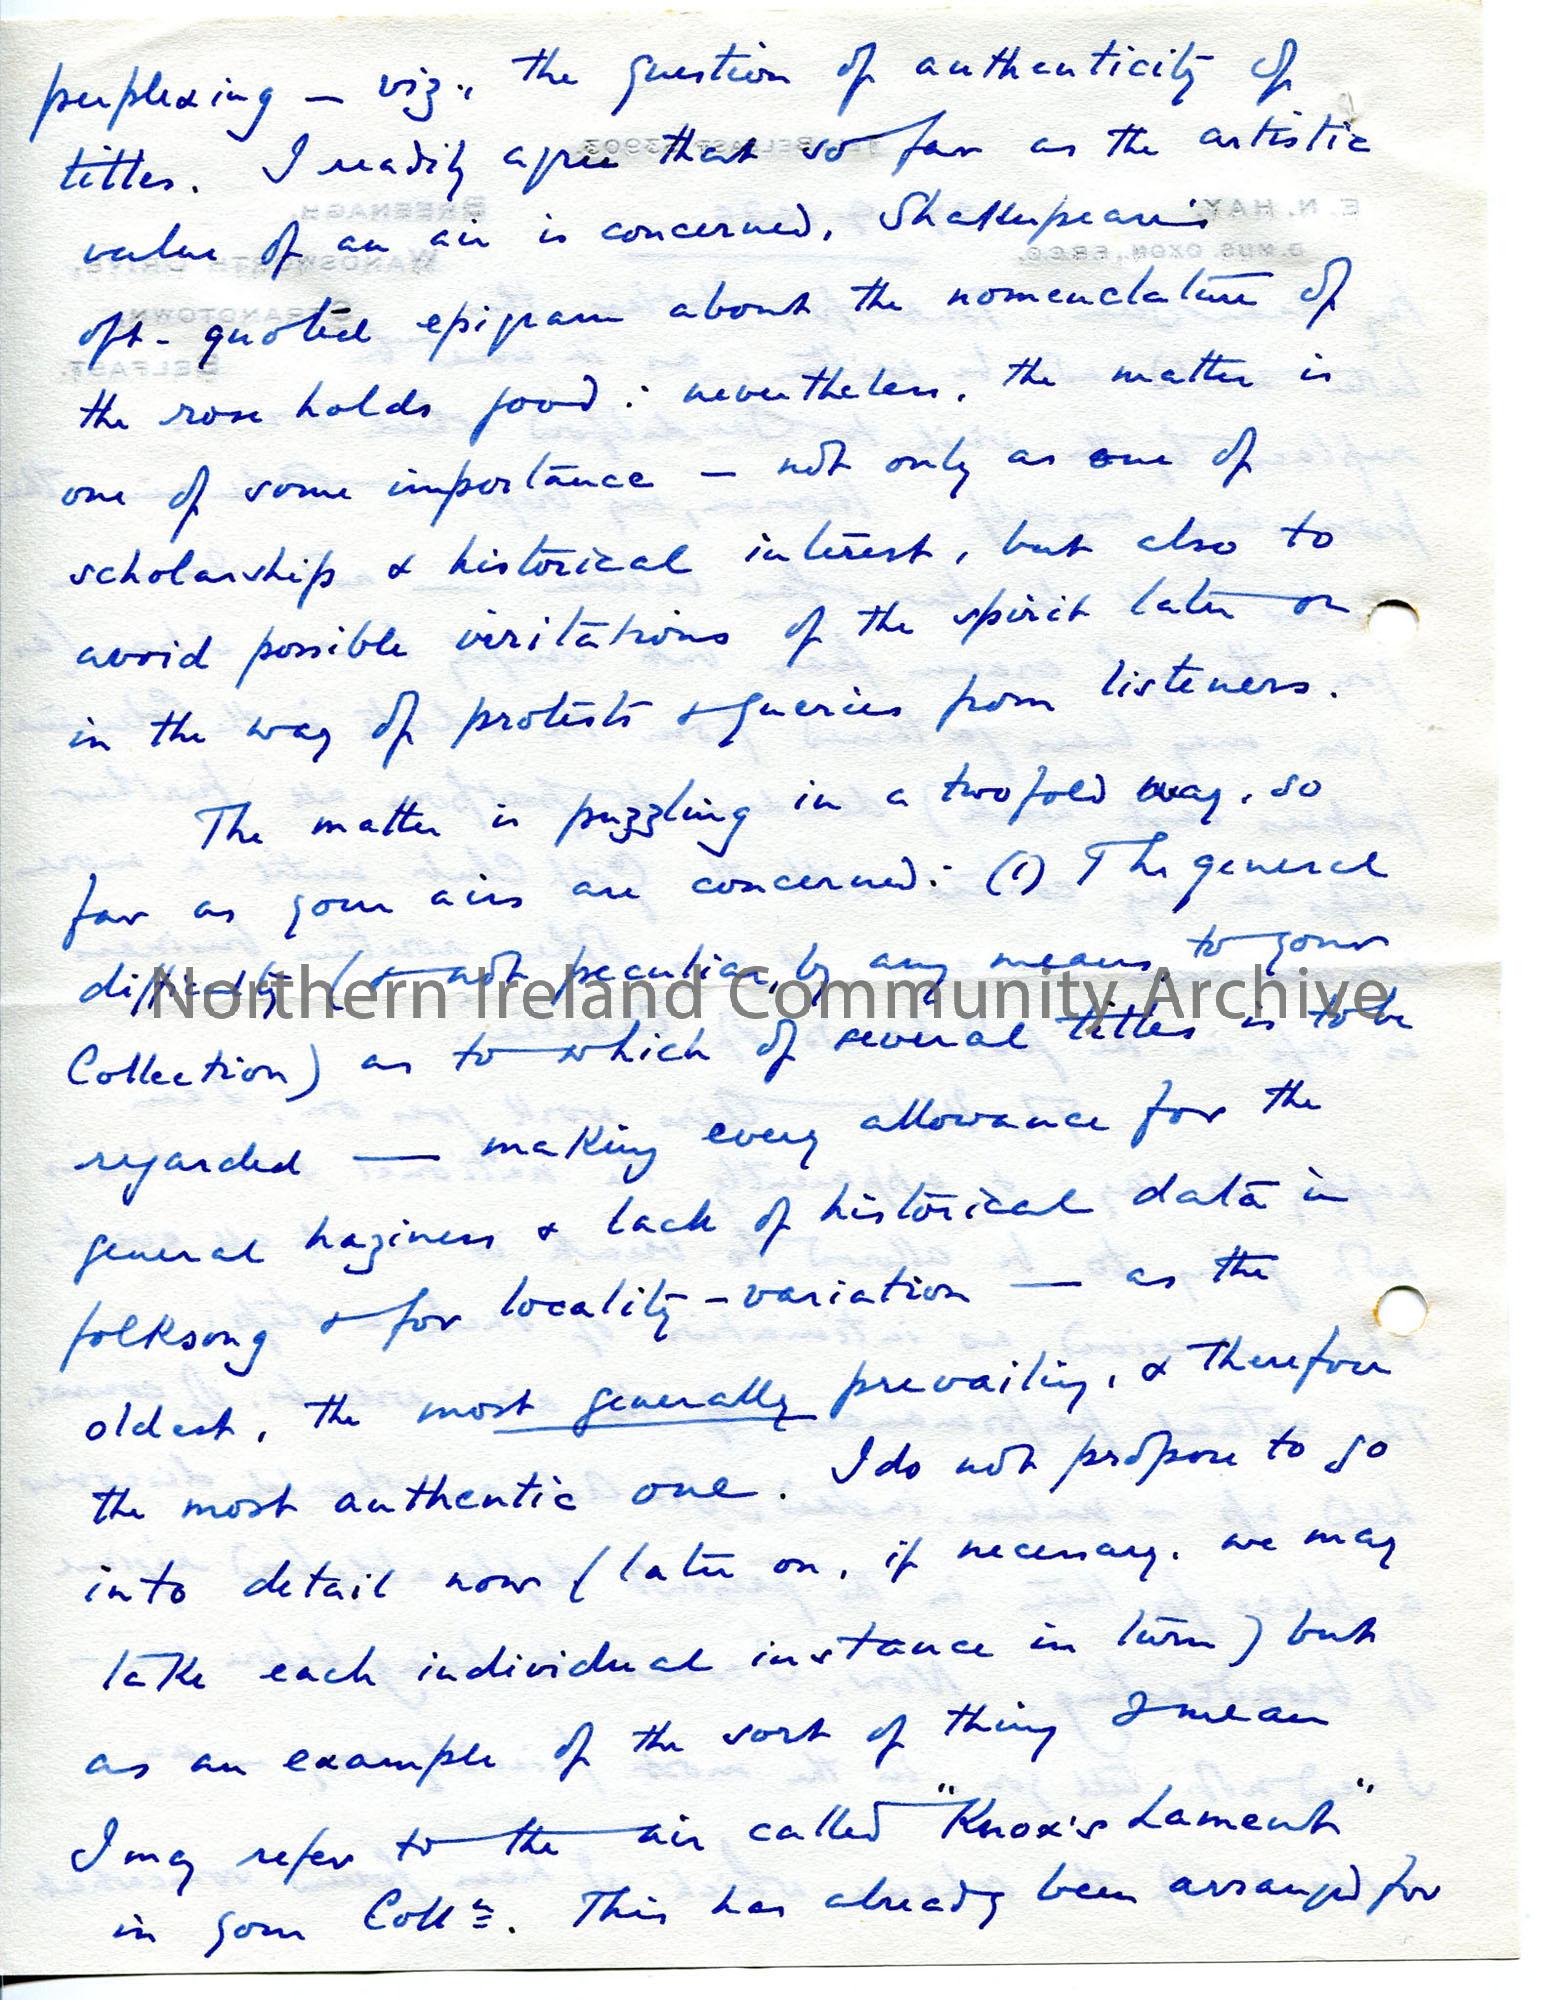 perplexing — viz., the question of authenticity of
titles. I readily agree that so far as the artistic
value of an air is concerned, Shakespeare's
oft-quoted epigram about the nomenclature of
the rose holds good: nevertheless, the matter is
one of some importance — not only as one of
scholarship & historical interest, but also to
avoid possible irritations of the spirit later on
in the way of protests & queries from listeners.
The matter is puzzling in a twofold way, so
far as your airs are concerned: (1) The general
difficulty (& not peculiar, by any means, to your
Northern Ireland Community Archive
Collection) as to which of several titles is to be
regarded — making every allowance for the
general haziness & lack of historical data in
folksong & for locality-variation — as the
oldest, the most generally prevailing, & therefore
the most authentic one. I do not propose to go
into detail now (later on, if necessary, we may
take each individual instance in turn) but
as an example of the sort of thing I mean
I may refer to the air called "Knox's Lament"
in your Colln. This has already been arranged for
E. N. HAY,
D. MUS. OXON., F.R.C.O.
BELFAST 53903.
BREENAGH,
WANDSWORTH DRIVE,
STRANDTOWN,
BELFAST.